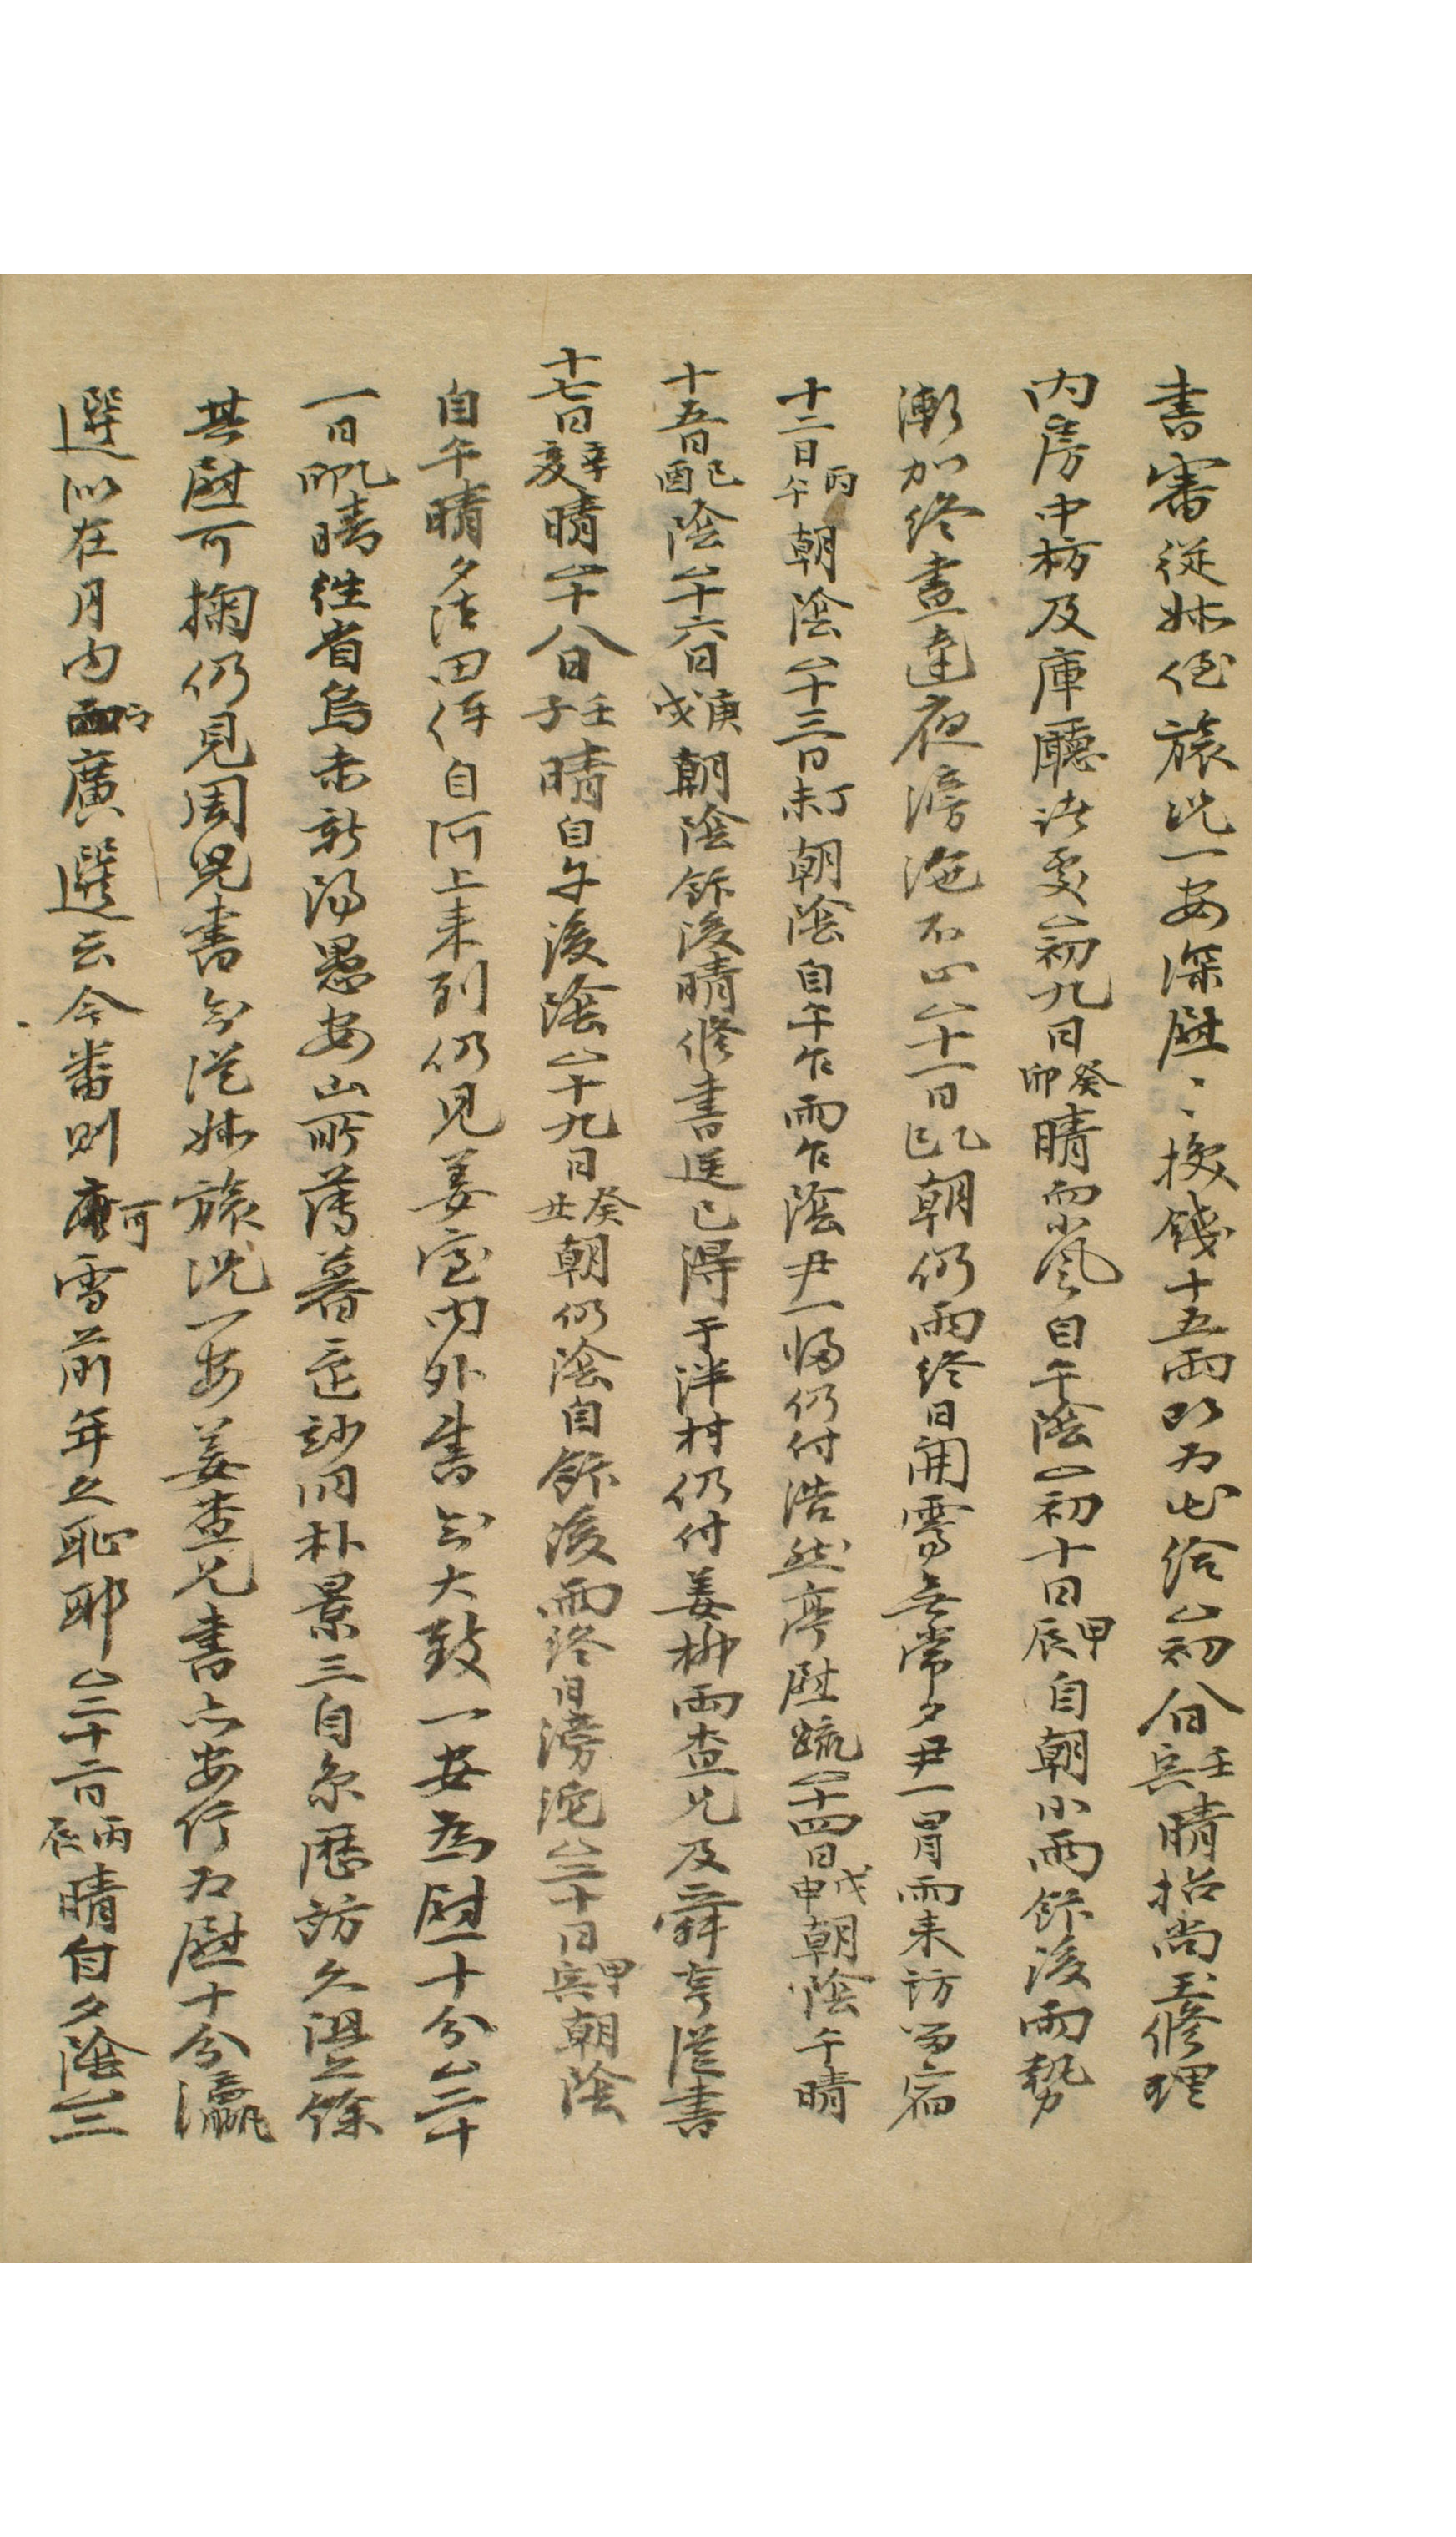 書審從姊侄旅況一安深慰〻撥錢十五兩以為出給△初八日壬寅晴招尙玉修理
內房中枋及庫廳諸處△初九日癸卯晴而小風自午陰△初十日甲辰自朝小雨飯後雨勢
漸加終晝達夜滂沱不止△十一日乙巳朝仍雨終日開霽無常夕尹一冒雨來訪留宿
十二日丙午朝陰△十三日丁未朝陰自午乍雨乍陰尹一歸仍付浩然亭慰疏△十四日戊申朝陰午晴
十五日己酉陰△十六日庚戌朝陰飯後晴修書送已得于泮村仍付姜柳兩查兄及舜亨從書
十七日辛亥晴△十八日壬子晴自午後陰△十九日癸丑朝仍陰自飯後雨終日滂沱△二十日甲寅朝陰
自午晴夕法田便自河上來到仍見姜室內外書知大致一安爲慰十分△二十
一日乙卯晴往省烏赤新阡汤愚安山所薄暮还沙洞朴景三自京歷訪久沮之餘
其慰可掬仍見周兒書知從姊旅況一安姜查兄書亦安行为慰十分瀛
選似在月內而今廣選云今番則庶可雪前年之恥耶△二十二日丙辰晴自夕陰△二十三